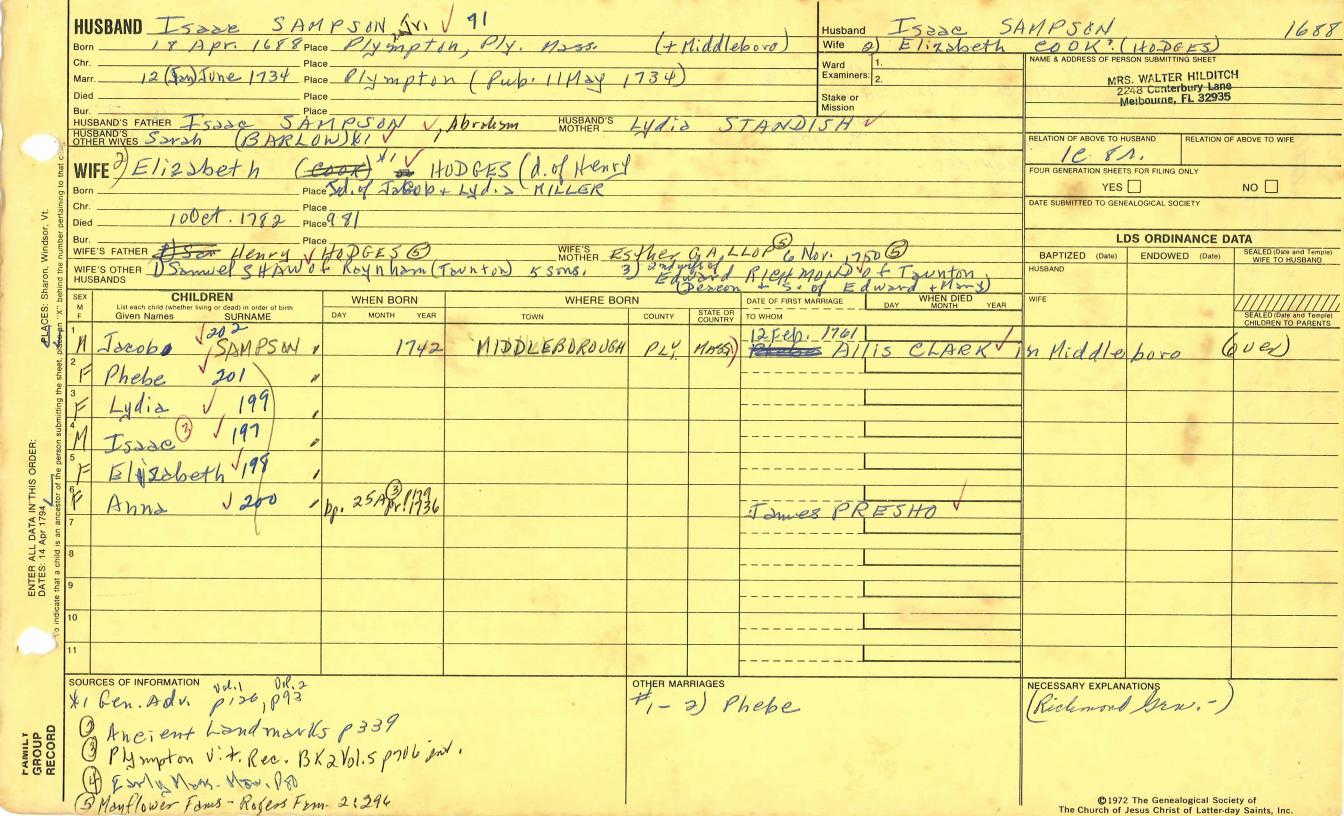 HUSBAND Isaac SAMPSON Jr. ✓ 91
Born 18 Apr. 1688 Place Plympton, Ply. Mass. (+ Middleboro)
Chr. Place
Marr. 12 (Jan) June 1734 Place Plympton (Pub. 11 May 1734)
Died Place
Bur. Place
HUSBAND'S FATHER Isaac SAMPSON ✓, Abraham HUSBAND'S MOTHER Lydia STANDISH ✓
HUSBAND'S OTHER WIVES Sarah (BARLOW) *1 ✓
WIFE 2) Elizabeth (Cook) *1 ✓ or HODGES (d. of Henry
Born Place d. of Jacob + Lydia MILLER
Chr. Place
Died 10 Oct. 1782 Place 981
Bur. Place
WIFE'S FATHER Henry ✓ HODGES (5) WIFE'S MOTHER Esther GALLOP (5) 6 Nov. 1750 (5)
WIFE'S OTHER HUSBANDS 1) Samuel SHAW of Raynham (Taunton) 5 sons. 3) 2nd wife of Edward RICHMOND of Taunton,
(Deacon + S. of Edward + Mary)
Husband Isaac SAMPSON 1688
Wife 2) Elizabeth COOK? (HODGES)
Ward Examiners: 1.
2.
Stake or Mission
NAME & ADDRESS OF PERSON SUBMITTING SHEET
MRS. WALTER HILDITCH
2248 Canterbury Lane
Melbourne, FL 32935
RELATION OF ABOVE TO HUSBAND RELATION OF ABOVE TO WIFE
FOUR GENERATION SHEETS FOR FILING ONLY
YES NO
DATE SUBMITTED TO GENEALOGICAL SOCIETY
LDS ORDINANCE DATA
BAPTIZED (Date) ENDOWED (Date) SEALED (Date and Temple) WIFE TO HUSBAND
HUSBAND
WIFE
SEALED (Date and Temple) CHILDREN TO PARENTS
SEX M F CHILDREN List each child (whether living or dead) in order of birth Given Names SURNAME WHEN BORN DAY MONTH YEAR WHERE BORN TOWN COUNTY STATE OR COUNTRY DATE OF FIRST MARRIAGE TO WHOM WHEN DIED DAY MONTH YEAR
1 M Jacob ✓ 202 SAMPSON " 1742 MIDDLEBOROUGH PLY. MASS) 12 Feb. 1761 Phebe Allis CLARK ✓ in Middleboro (over)
2 F Phebe ✓ 201 "
3 F Lydia ✓ 199 "
4 M Isaac (3) ✓ 197 "
5 F Elizabeth ✓ 198 "
6 F Anna ✓ 200 " bp. 25 Apr. 1736 (3) James PRESHO ✓
7
8
9
10
11
SOURCES OF INFORMATION
*1 Gen. Adv. Vol. 1 p126, Vol. 2 p93
(2) Ancient Landmarks p339
(3) Plympton Vit. Rec. BK 2 Vol. 5 p706 int.
(4) Early Mass. Mar. p80
(5) Mayflower Fams - Rogers Fam. 2:296
OTHER MARRIAGES
#1 - 2) Phebe
NECESSARY EXPLANATIONS
(Richmond Gen. -)
©1972 The Genealogical Society of
The Church of Jesus Christ of Latter-day Saints, Inc.
ENTER ALL DATA IN THIS ORDER:
DATES: 14 Apr 1794
PLACES: Sharon, Windsor, Vt.
To indicate that a child is an ancestor of the person submitting the sheet, place an "X" behind the number pertaining to that c
FAMILY GROUP RECORD